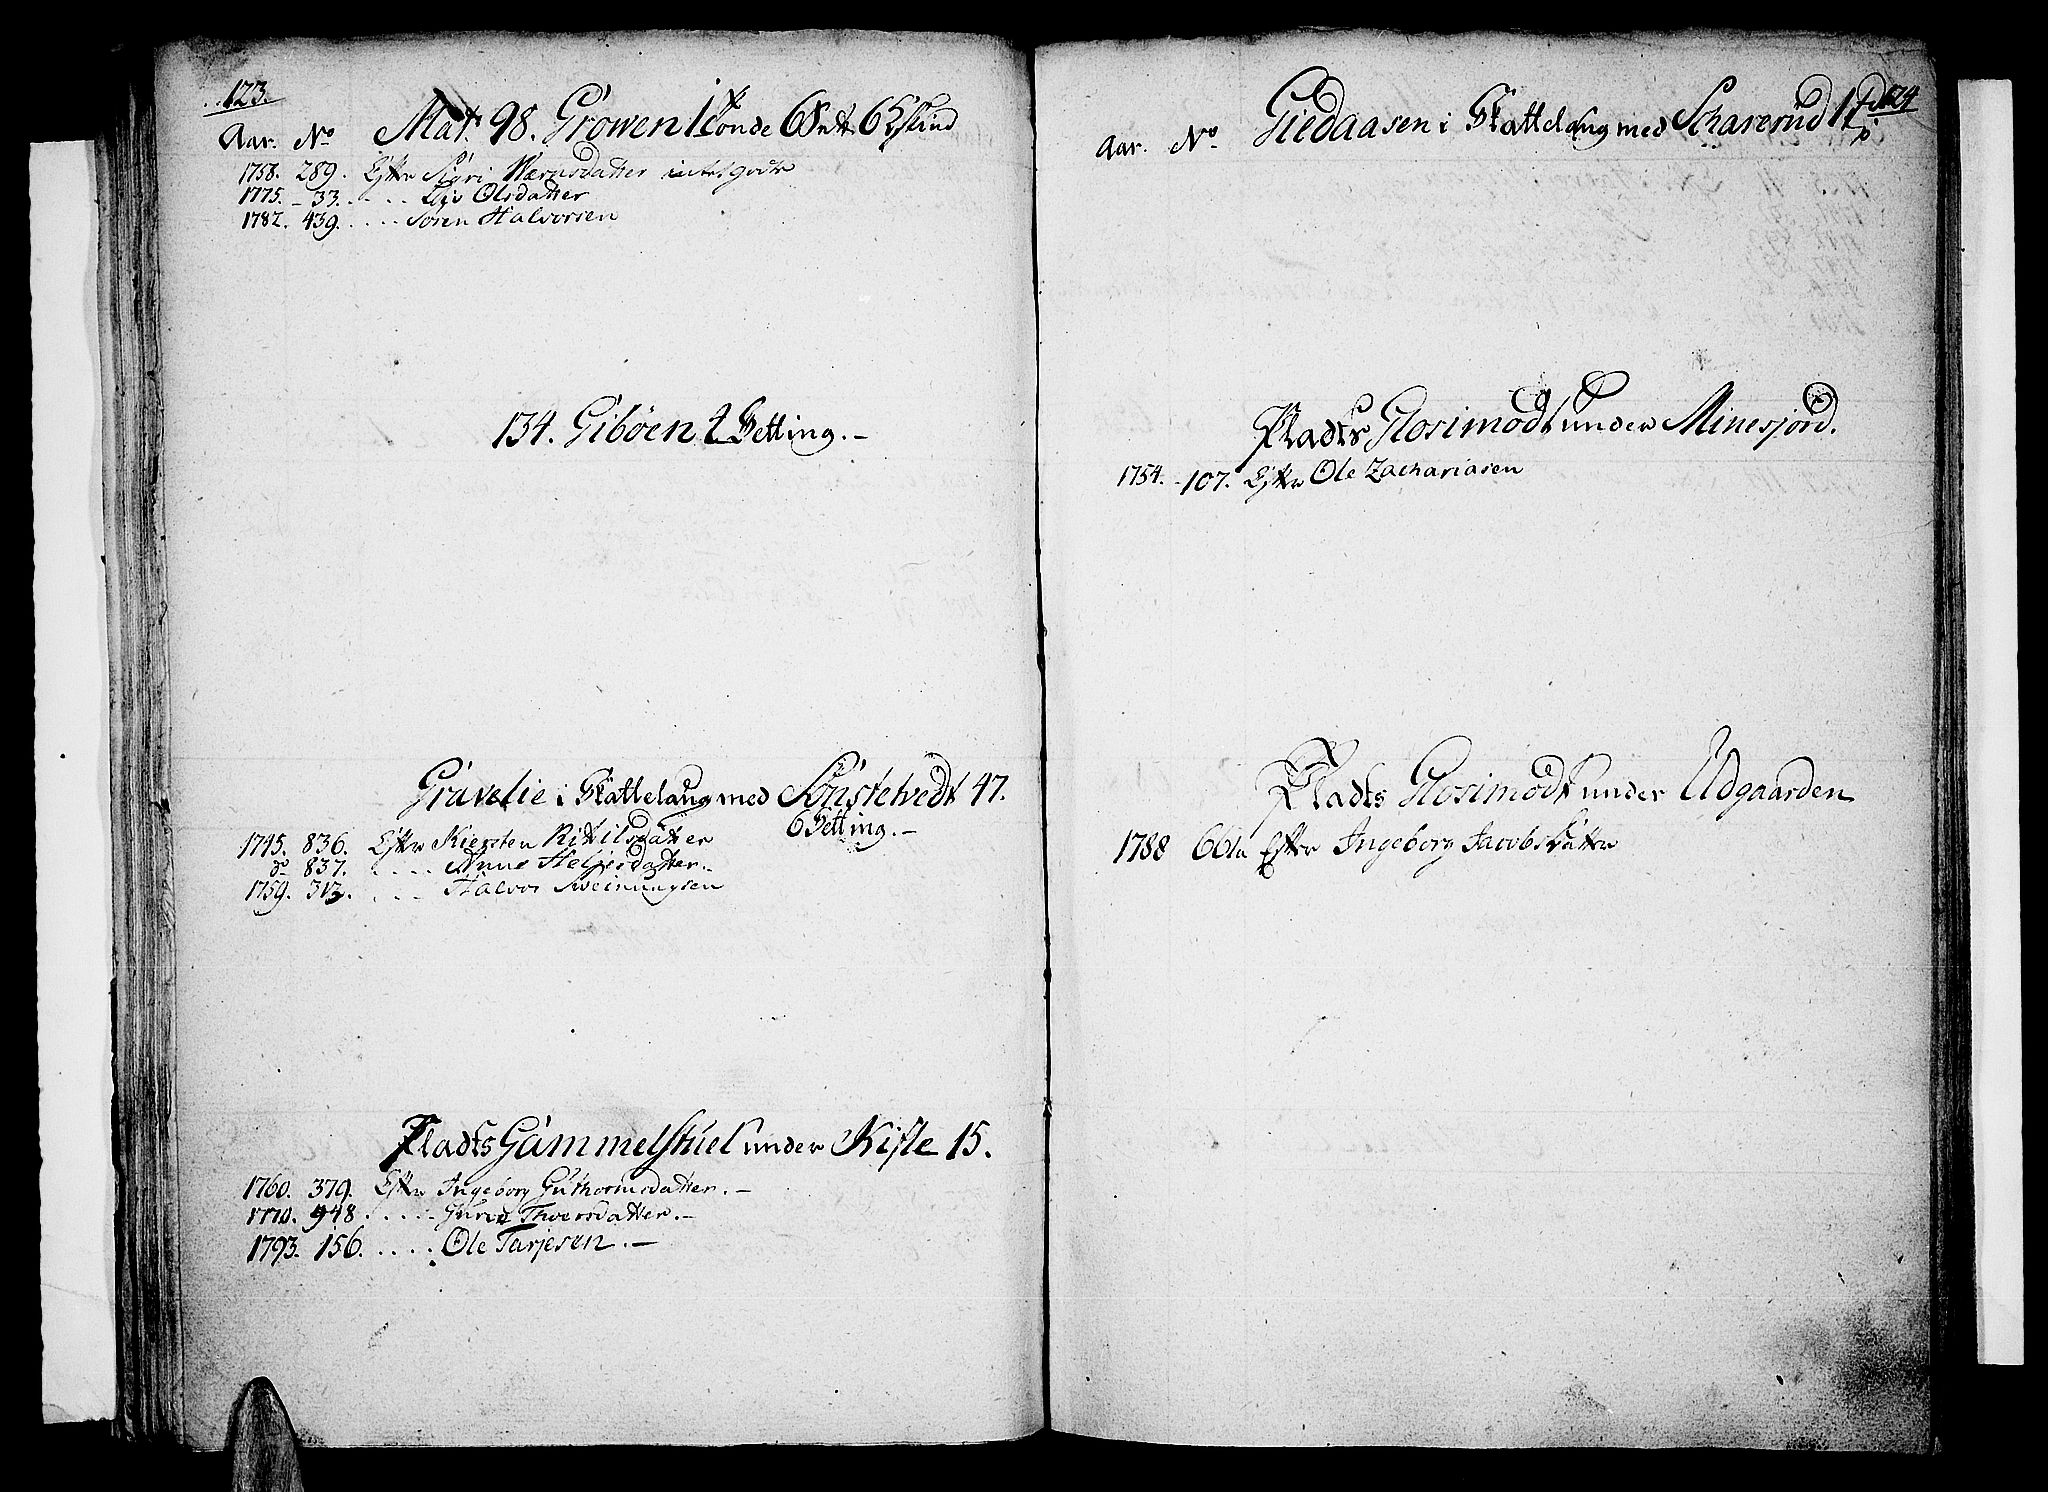 123.
Aar. No Mat: 98. Gröwen 1 6 6 skind
1758. 289. Efter Sigri intet godts
1775. 33. . . . . Liv Olsdatter
1782. 439. . . . . Sören Halvorsen
134. Giböen 2 Setting. –
Gravelie i Skattelaug med Sönstetvedt 47.
6 Setting. –
1745. 836. Efter Kiersten Kittilsdatter
do 837. . . . . Anne Helgesdatter. –
1759. 313. . . . Halvor Sveinungsen
Pladts Gammelstuel under Kifle 15.
1760. 379. Efter Ingeborg Guthormsdatter. –
1770. 948. . . . . Gurie Thorsdatter. –
1793. 156. . . . . Ole Tarjesen. –
124
Aar. No. Giedaasen i Skattelaug med Scharerud 1
Pladts Glosimodt under Minesjord.
1754. 107. Efter Ole Zachariasen
Pladts Glosimodt under Udgaarden
1788 661a Efter Ingeborg Jacobsdatter